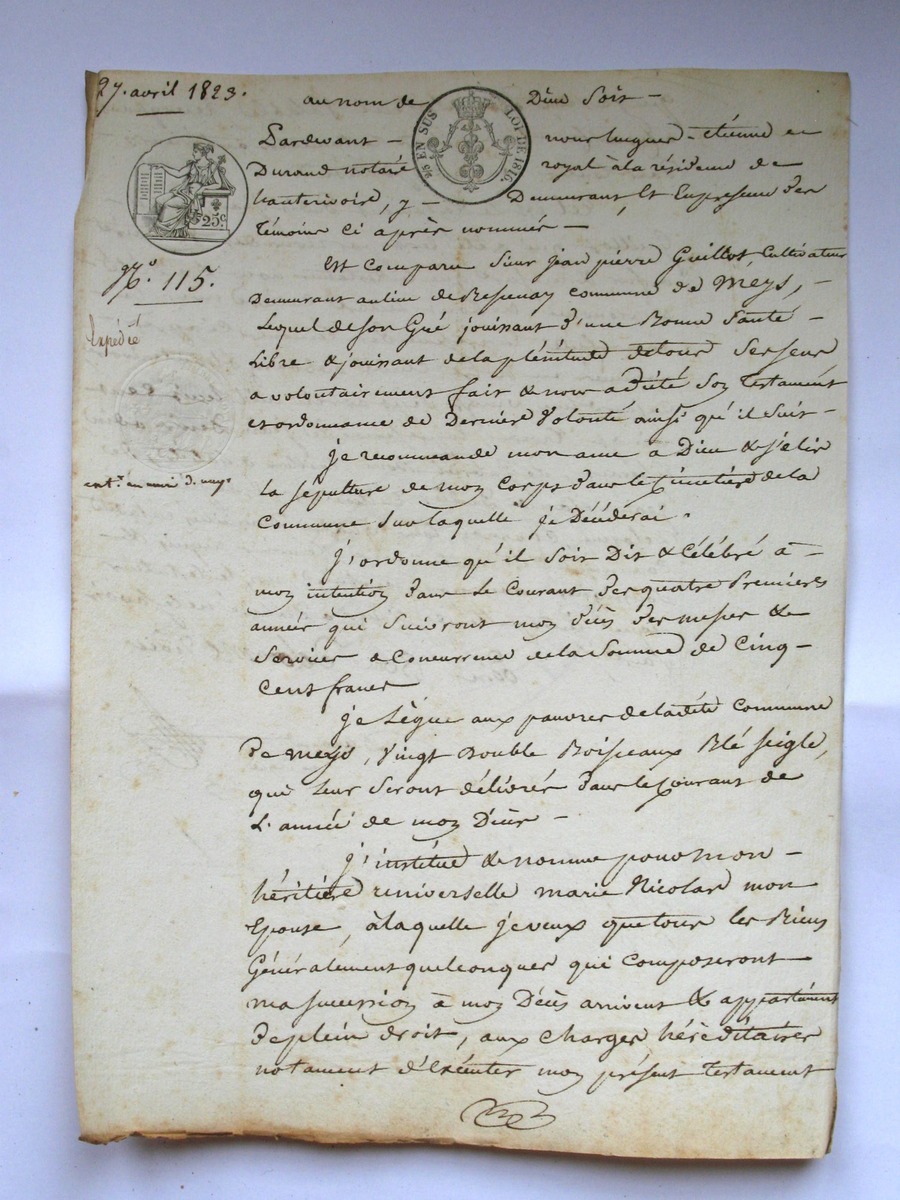 27. avril 1823.
au nom de Dieu Soit —
EN SUS LOI DE 1816.
25c.
Pardevant — nous hugues-étienne
Durand notaire royal à la résidence de
hauterivoire, y — Demeurant Et En presence Des
Témoins Ci après nommés —
N.o 115.
Expédié
Est comparu Sieur jean pierre Guillot, Cultivateur
Demeurant au lieu de commune de Meys, —
Lequel de Son Gré jouissant D'une Bonne Santé —
Libre & jouissant de la plénitude de tous Ses Sens
a volontairement fait & nous a dicté Son Testament
et ordonnance de Dernière Volonté ainsi qu'il Suit —
je recommande mon ame a Dieu & j'elis
La Sépulture de mon Corps Dans le Cimetière de la
Commune Sur laquelle je Décéderai.
J'ordonne qu'il Soit Dit & Célébré à —
mon intention Dans Le Courant Des quatre Premieres
année qui Suivront mon Décès Des messes &
Services a Concurrence de la Somme de Cinq —
Cent francs
je Lègue aux pauvres de ladite Commune
De Meys, Vingt Double Boisseaux Blé Seigle,
qui Leur Seront délivrés Dans le Courant de
L'année de mon Décès —
j'institue & nomme pour mon —
héritière universelle marie Nicolas mon
Epouse, à laquelle je veux que tous les Biens
Généralement quelconques qui Composeront
ma succession à mon Décès arrivent & appartiennent
De plein droit, aux Charges héréditaires
notament d'Exécuter mon présent Testament